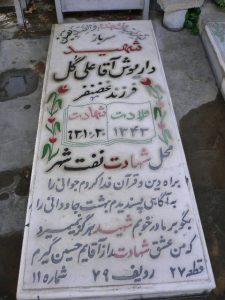 سرباز
شهید
داریوش آقا علی گل
فرزند غضنفر
ولادت شهادت
۱۳۴۳
محل شهادت نفت شهر
براه دین و قرآن فدا کردم جوانی را
به آگاهی پسندیدم بهشت جاودانی را
بگو بر مادر خوبم شهید هرگز نمیمیرد
که من عشق شهادت را ز آقایم حسین گیرم
قطعه ۲۷ ردیف ۷۹ شماره ۱۱